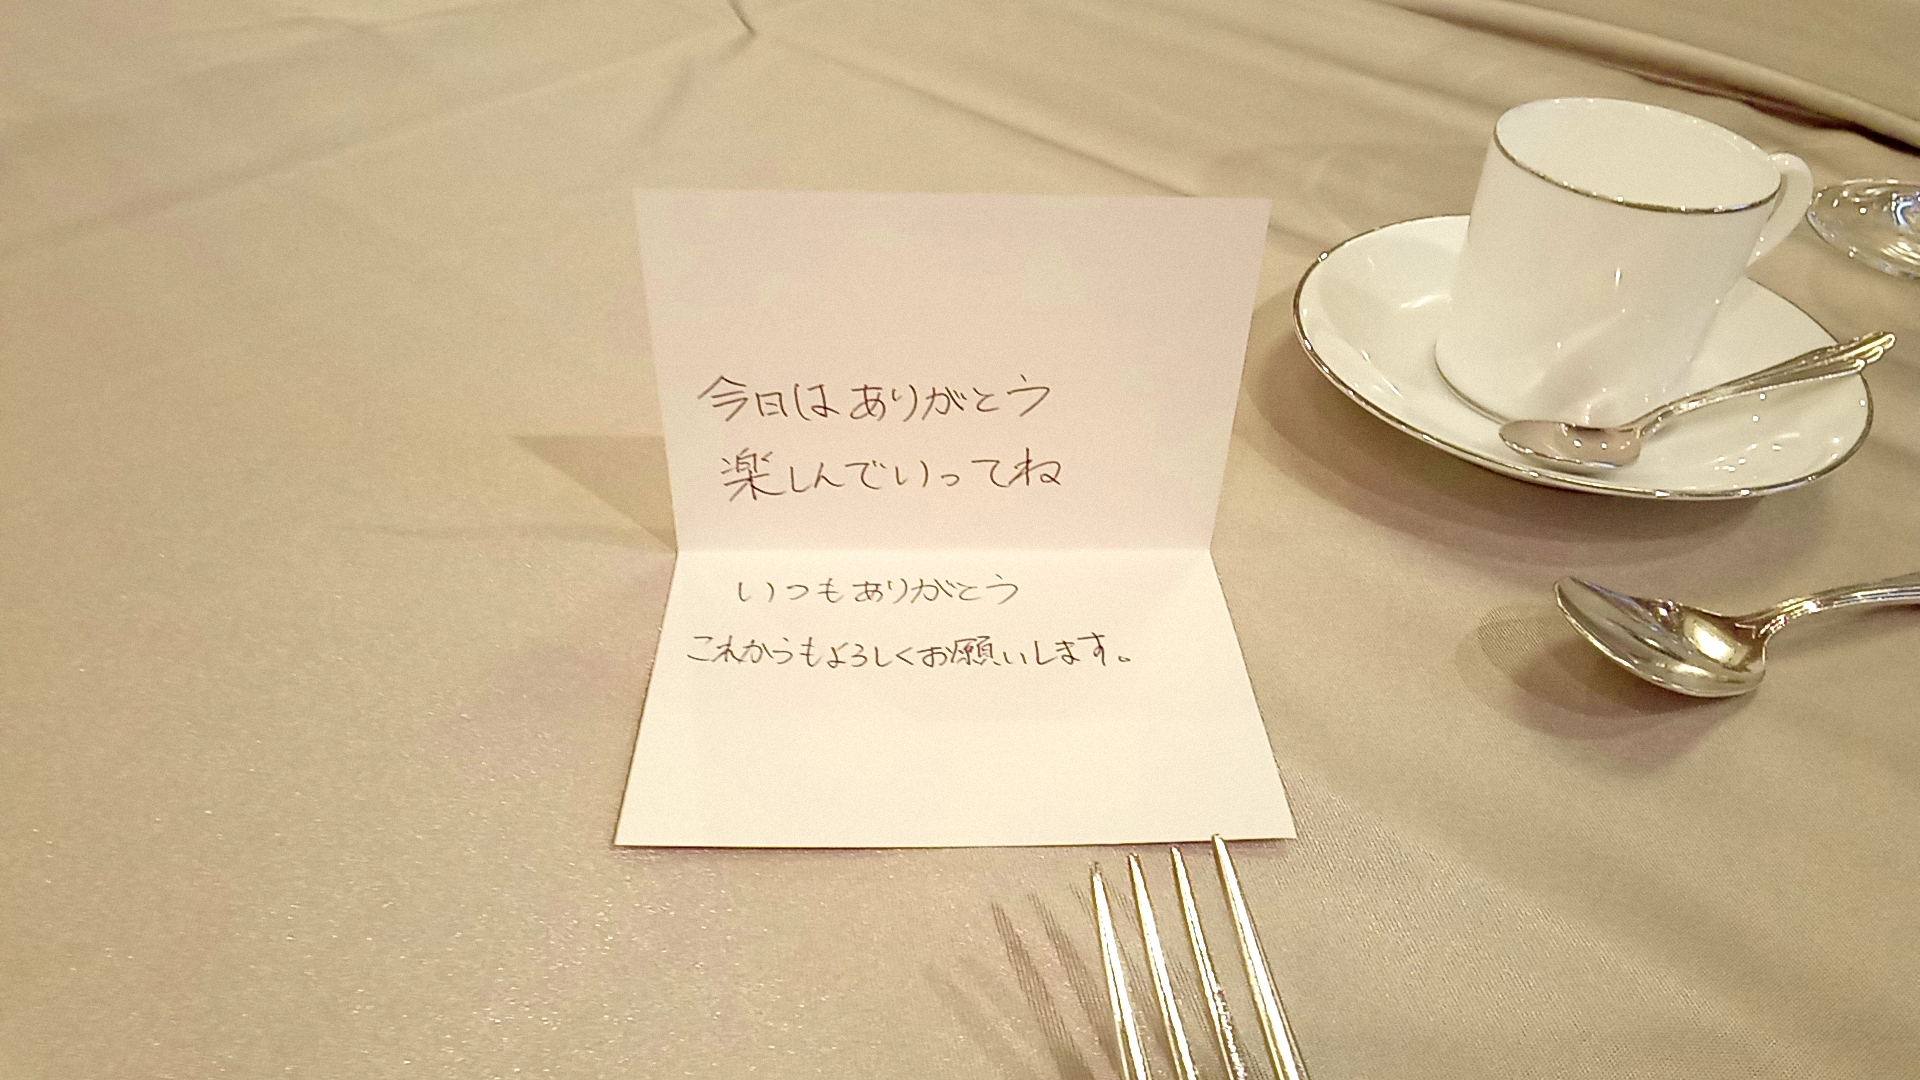 今日はありがとう
楽しんでいってね
いつもありがとう
これからもよろしくお願いします。